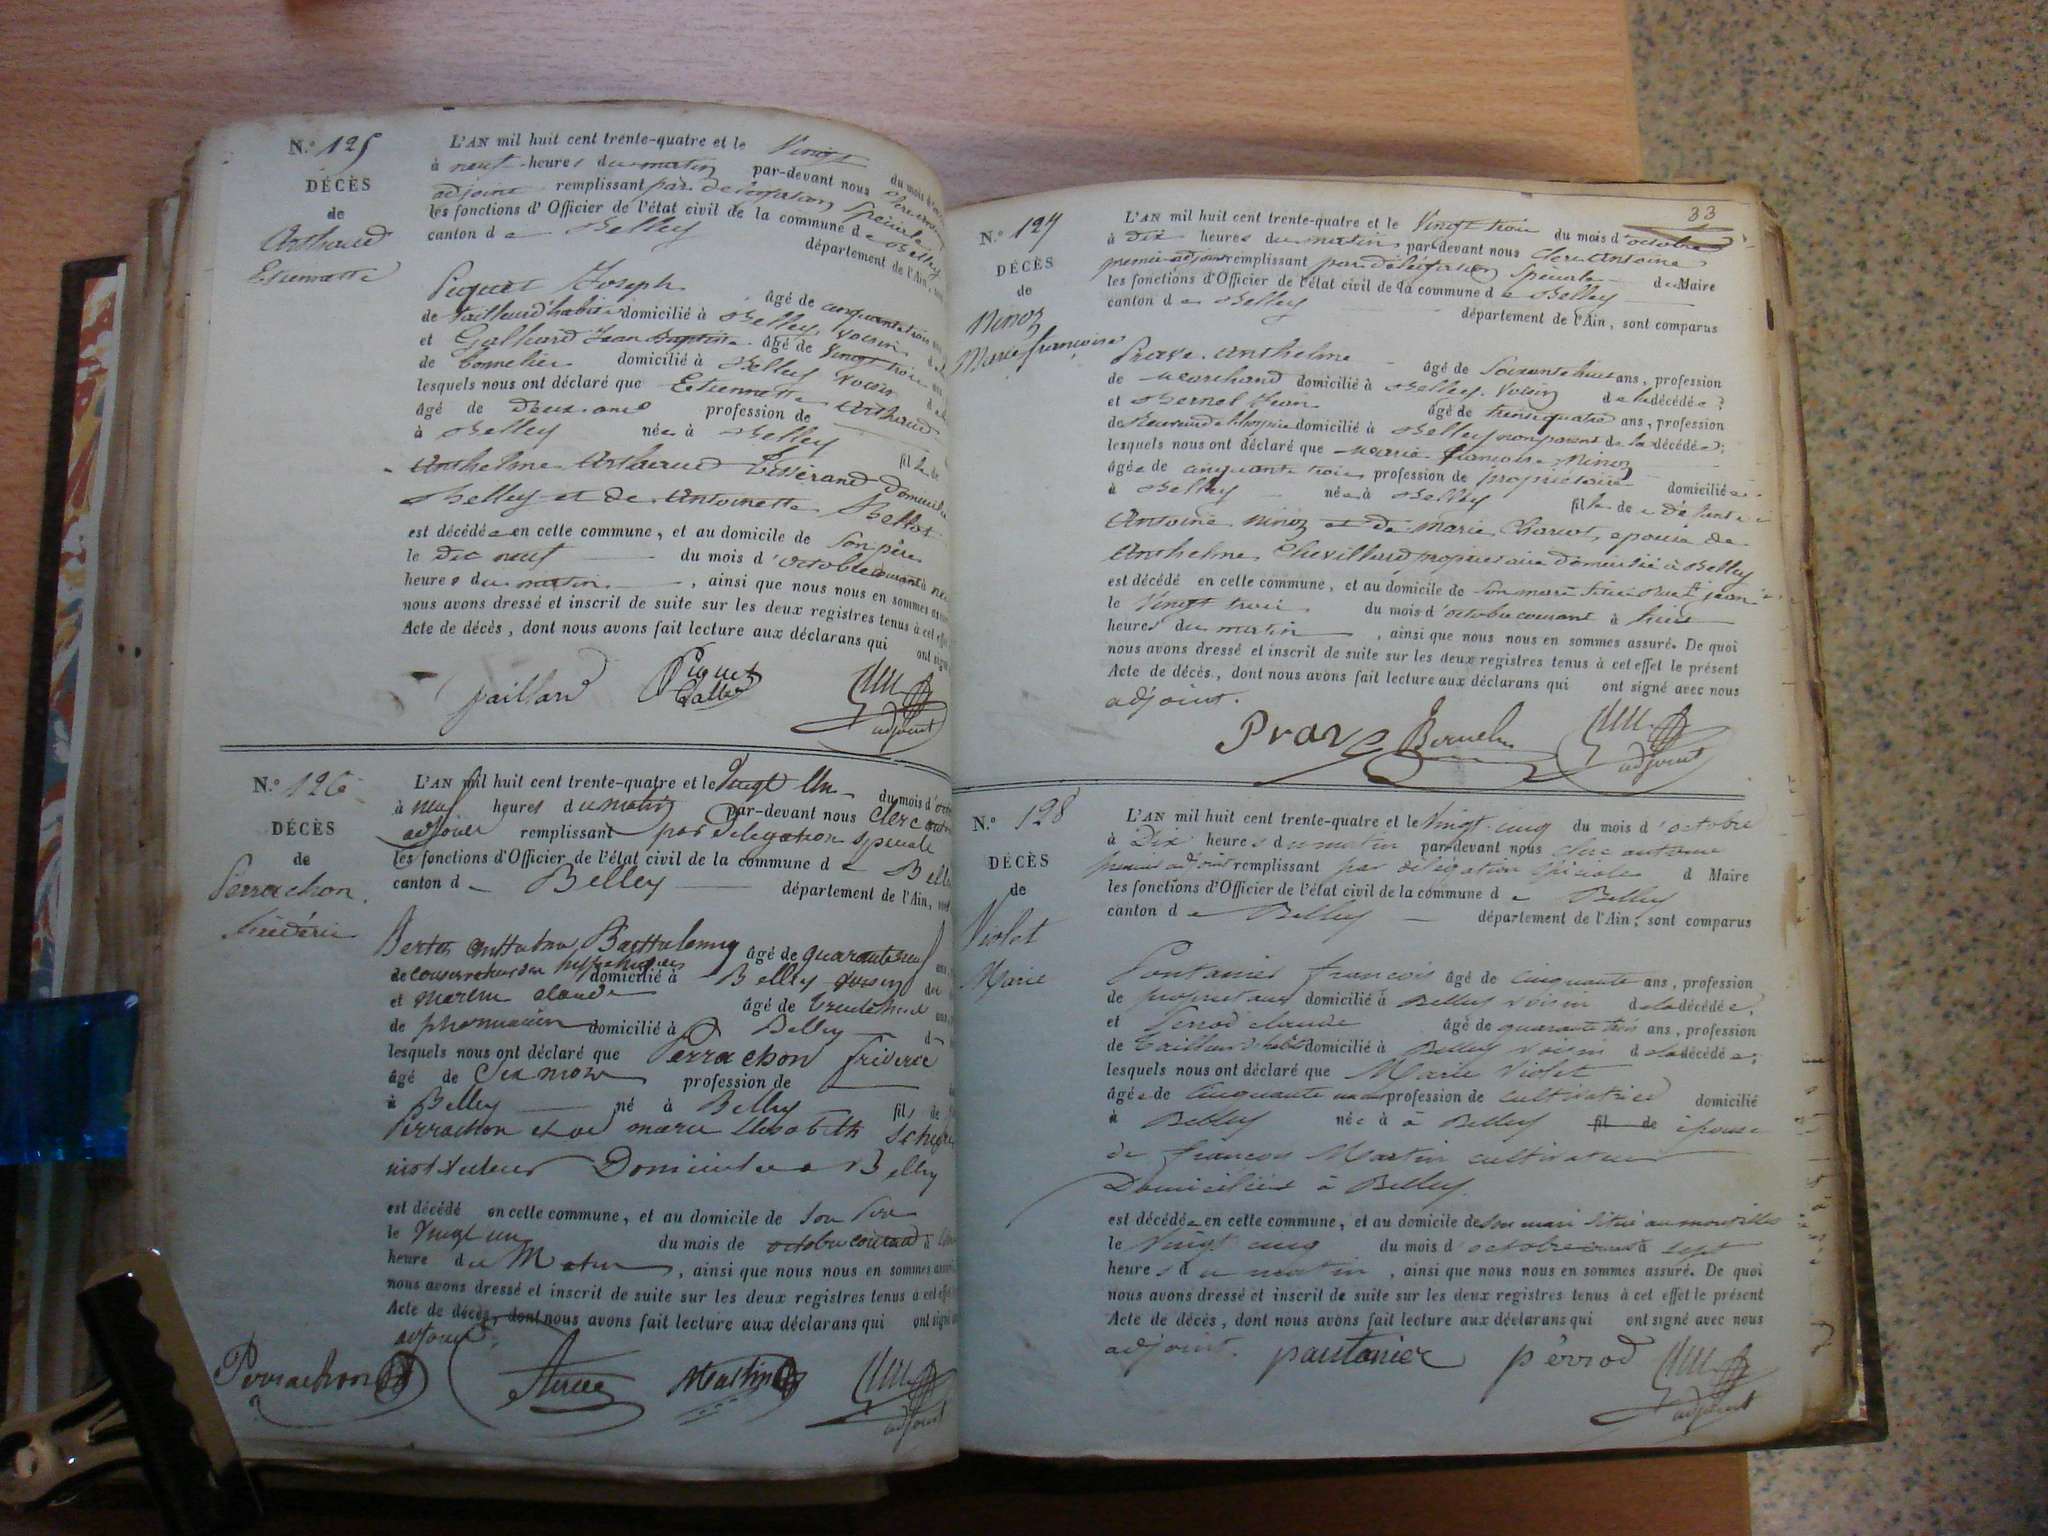 N.o 125
DÉCÈS
de
Arthaud
Etiennette
L'AN mil huit cent trente-quatre et le Vingt du mois d'
à neuf heures du matin par-devant nous
adjoint remplissant par délégation Spéciale
les fonctions d'Officier de l'état civil de la commune de Belley
canton de Belley département de l'Ain,
Piquet Joseph âgé de cinquante trois
de tailleur d'habits domicilié à Belley, voisin
et Galliard Jean Baptiste âgé de Vingt trois
de domicilié à Belley voisin
lesquels nous ont déclaré que Etiennette Arthaud
âgé de Deux ans profession de
à Belley née à Belley fille de
Anthelme Arthaud Tisserand Domicilié
Belley et de Antoinette
est décédée en cette commune, et au domicile de Son père
le dix neuf du mois d'octobre courant à
heures du matin, ainsi que nous nous en sommes
nous avons dressé et inscrit de suite sur les deux registres tenus à cet effet
Acte de décès, dont nous avons fait lecture aux déclarans qui ont signé
Paillard Piquet
adjoint
N.o 126
DÉCÈS
de
Perrachon
frédéric
L'AN mil huit cent trente-quatre et le Vingt Un du mois d'
à neuf heures du matin par-devant nous Clerc
adjoint remplissant par Délégation spéciale
les fonctions d'Officier de l'état civil de la commune de
canton de Belley département de l'Ain,
Barthelemy âgé de quarante neuf
de conservateur des hypothèques domicilié à Belley voisin
et martin claude âgé de
de pharmacien domicilié à Belley
lesquels nous ont déclaré que Perrachon fréderic
âgé de Six mois profession de
à Belley né à Belley fils de
Perrachon et de marie Elisabeth
instituteur Domicilié à Belley
est décédé en cette commune, et au domicile de Son père
le Vingt un du mois de octobre courant à
heure du Matin, ainsi que nous nous en sommes
nous avons dressé et inscrit de suite sur les deux registres tenus à cet effet
Acte de décès, dont nous avons fait lecture aux déclarans qui ont signé
adjoint.
Perrachon Martin
adjoint
33
N.o 127
DÉCÈS
de
Ninoz
Marie françoise
L'AN mil huit cent trente-quatre et le Vingt trois du mois d'octobre
à Dix heures du matin par-devant nous Clerc Antoine
premier adjoint remplissant par délégation Spéciale de Maire
les fonctions d'Officier de l'état civil de la commune de Belley
canton de Belley département de l'Ain, sont comparus
Prave Anthelme âgé de Soixante huit ans, profession
de Marchand domicilié à Belley, Voisin de la décédée
et Bernel Jean âgé de trente quatre ans, profession
domicilié à Belley non parent de la décédée;
lesquels nous ont déclaré que Marie françoise Ninoz
âgée de cinquante trois profession de propriétaire domiciliée
à Belley née à Belley fille de défunt
Antoine Ninoz et de Marie Charvet, epouse de
Anthelme Chevillard propriétaire domicilié à Belley
est décédé en cette commune, et au domicile de Son mari
le Vingt trois du mois d'octobre courant à huit
heures du matin, ainsi que nous nous en sommes assuré. De quoi
nous avons dressé et inscrit de suite sur les deux registres tenus à cet effet le présent
Acte de décès, dont nous avons fait lecture aux déclarans qui ont signé avec nous
adjoint.
Prave
adjoint
N.o 128
DÉCÈS
de
Violet
Marie
L'AN mil huit cent trente-quatre et le Vingt-cinq du mois d'octobre
à Dix heures du matin par-devant nous clerc antoine
premier adjoint remplissant par délégation spéciale d Maire
les fonctions d'Officier de l'état civil de la commune de Belley
canton de Belley département de l'Ain, sont comparus
françois âgé de cinquante ans, profession
de propriétaire domicilié à Belley voisin de la décédée
et Perrod claude âgé de quarante trois ans, profession
de Tailleur d'habits domicilié à Belley voisin de la décédée;
lesquels nous ont déclaré que Marie Violet
âgée de Cinquante profession de cultivatrice domicilié
à Belley née à à Belley fil de épouse
de françois Martin cultivateur
Domiciliés à Belley
est décédée en cette commune, et au domicile de son mari situé
le Vingt cinq du mois d'octobre courant à sept
heures du matin, ainsi que nous nous en sommes assuré. De quoi
nous avons dressé et inscrit de suite sur les deux registres tenus à cet effet le présent
Acte de décès, dont nous avons fait lecture aux déclarans qui ont signé avec nous
adjoint. pantanier pérrod
adjoint